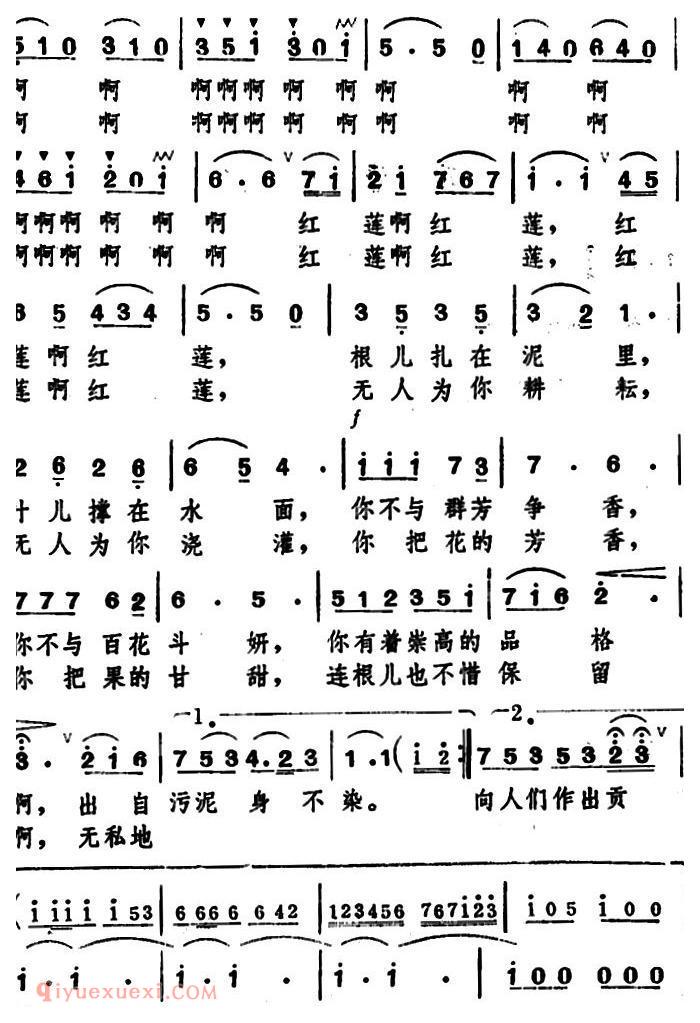 510 310 | 351 301 | 5·50 | 140 640 |
啊 啊 啊啊啊 啊 啊 啊 啊 啊
啊 啊 啊啊啊 啊 啊 啊 啊 啊
461 201 | 6·6 71 | 21 767 | 1·1 45 |
啊啊啊 啊 啊 啊 红 莲啊红 莲，红
啊啊啊 啊 啊 啊 红 莲啊红 莲，红
6 5 434 | 5·50 | 3 5 3 5 | 3 2 1· |
莲啊红 莲， 根儿扎在泥里，
莲啊红 莲， 无人为你耕耘，
f
2 6 2 6 | 6 5 4· | 111 73 | 7·6· |
叶儿撑在水面，你不与群芳争香，
无人为你浇灌，你把花的芳香，
777 62 | 6·5· | 512351 | 716 2· |
你不与百花斗妍，你有着崇高的品格
你把果的甘甜，连根儿也不惜保留
1. 2.
3· 216 | 753 4·23 | 1·1( 12 :‖ 753532 3
啊，出自污泥身不染。 向人们作出贡
啊，无私地
( 1111 153 | 6666 642 | 123456 767123 | 105 100
1·1· | 1·1· | 1·1· | 100 000
qiyuexuexi.com